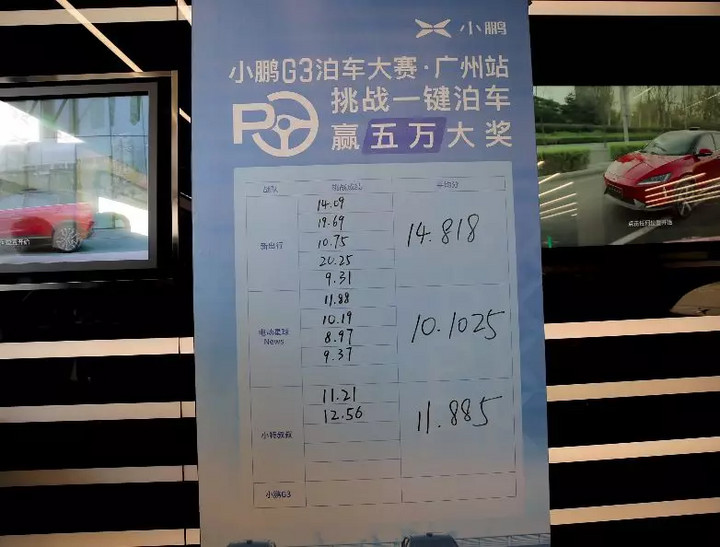 小鹏
小鹏G3泊车大赛·广州站
P 挑战一键泊车
赢五万大奖
战队 挑战成绩 平均分
新出行
14.09
19.69
10.75
20.25
9.31
14.818
电动星球
News
11.88
10.19
8.97
9.37
10.1025
11.21
12.56
11.885
小鹏G3
点击任何位置开始